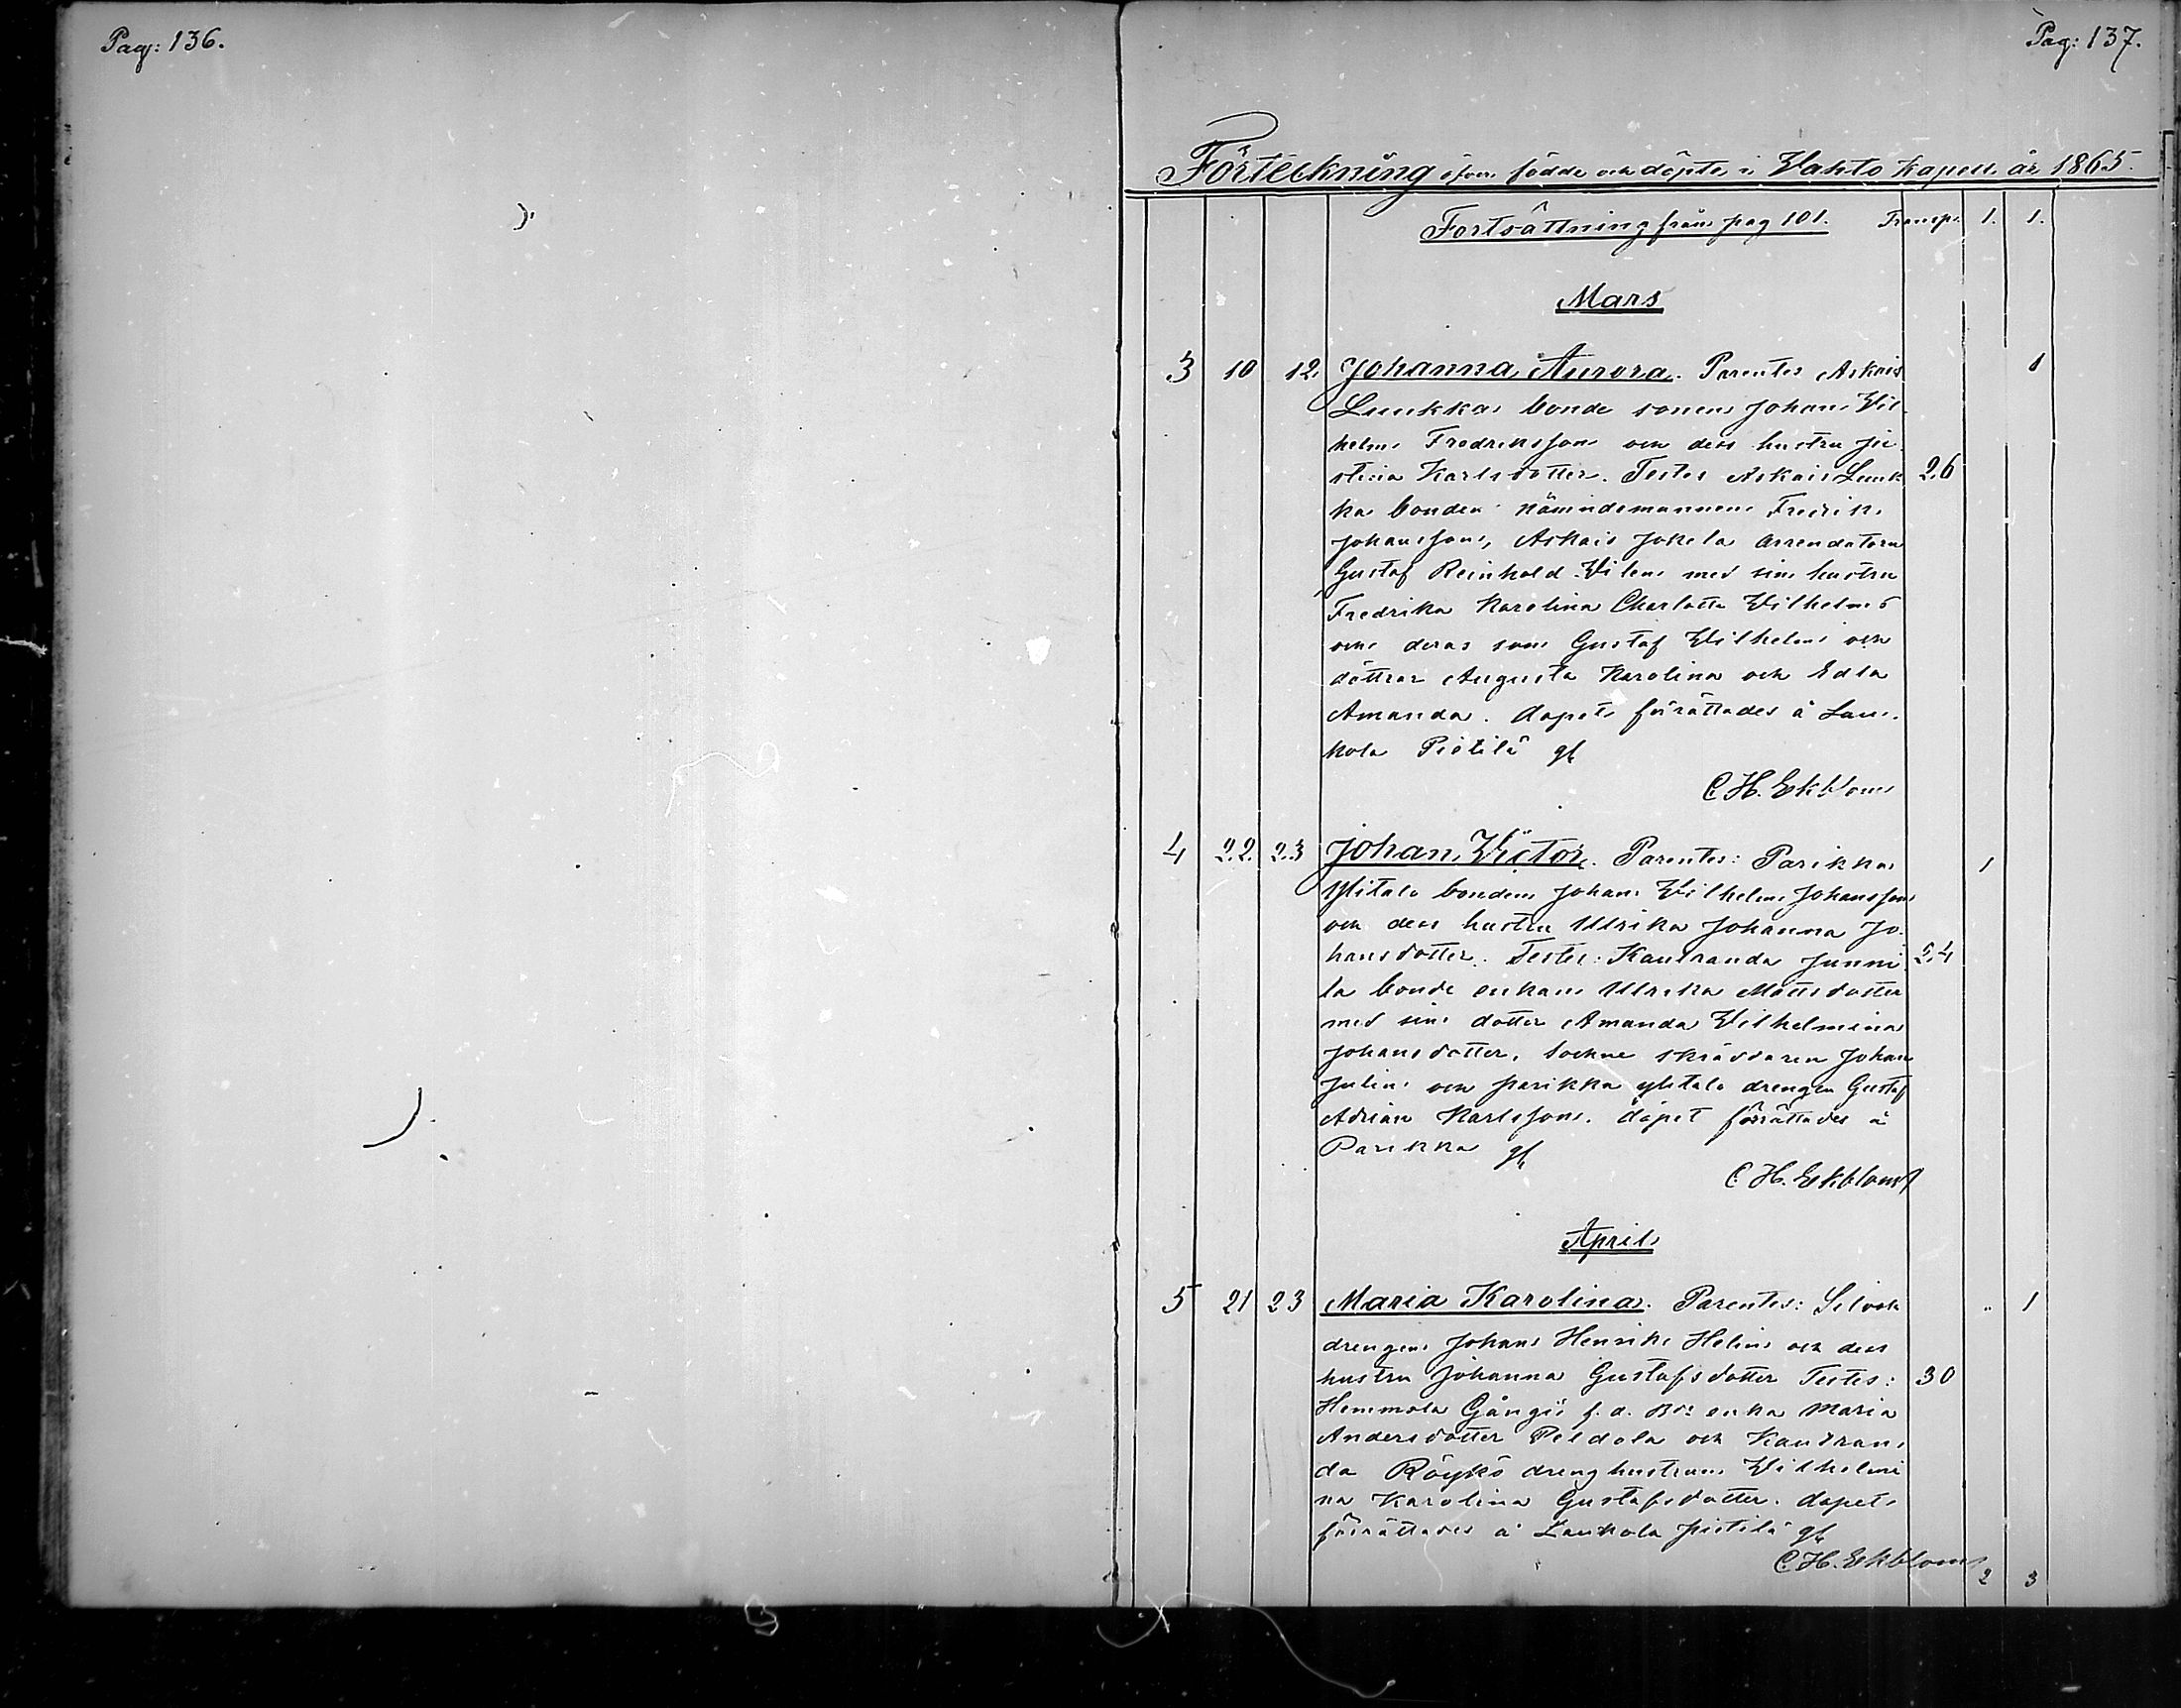 Pag: 136.
Pag: 137.
Förteckning öfver födde och döpte i Vahto Kapell år 1865.
Fortsättning från pag 101. Transp. 1. 1.
Mars
3 10 12. Johanna Aurora. Parentes Askais 1
Luukka bonde sonen Johan Vil-
helm Fredriksson och dess hustru Ju-
stina Karlsdotter. Testes Askais Luuk 26
ka bonden nämndemannen Fredrik
Johansson, Askais Jokela arrendatorn
Gustaf Reinhold Vilen med sin hustru
Fredrika Karolina Charlotta Vilhelms
och deras son Gustaf Vilhelm och
döttrar Augusta Karolina och Edla
Amanda. dopet förättades å Lau-
kola Pietilä
C. H. Ekblom
4 22. 23 Johan Victor. Parentes: Parikka 1
Ylitalo bonden Johan Vilhelm Johansson
och dess hustru Ulrika Johanna Jo-
hansdotter. Testes: Kautranda Junni 24
la bonde enkan Ulrika Mattsdotter
med sin dotter Amanda Vilhelmina
Johansdotter, sockne skräddaren Johan
Julin och parikka ylitalo drengen Gustaf
Adrian Karlsson. döpet förrättades å
Parikka
C. H. Ekblom
April
5 21 23 Maria Karolina. Parentes: .. 1
drengen Johan Henrik Helin och dess
hustru Johanna Gustafsdotter Testes: 30
Hemmola f. d. enka Maria
Andersdotter Peldola och Kautran-
da Röykö dreng hustrun Vilhelmi
na Karolina Gustafsdotter. dopet
förrättades å Laukola pietilä
C. H. Ekblom
2 3